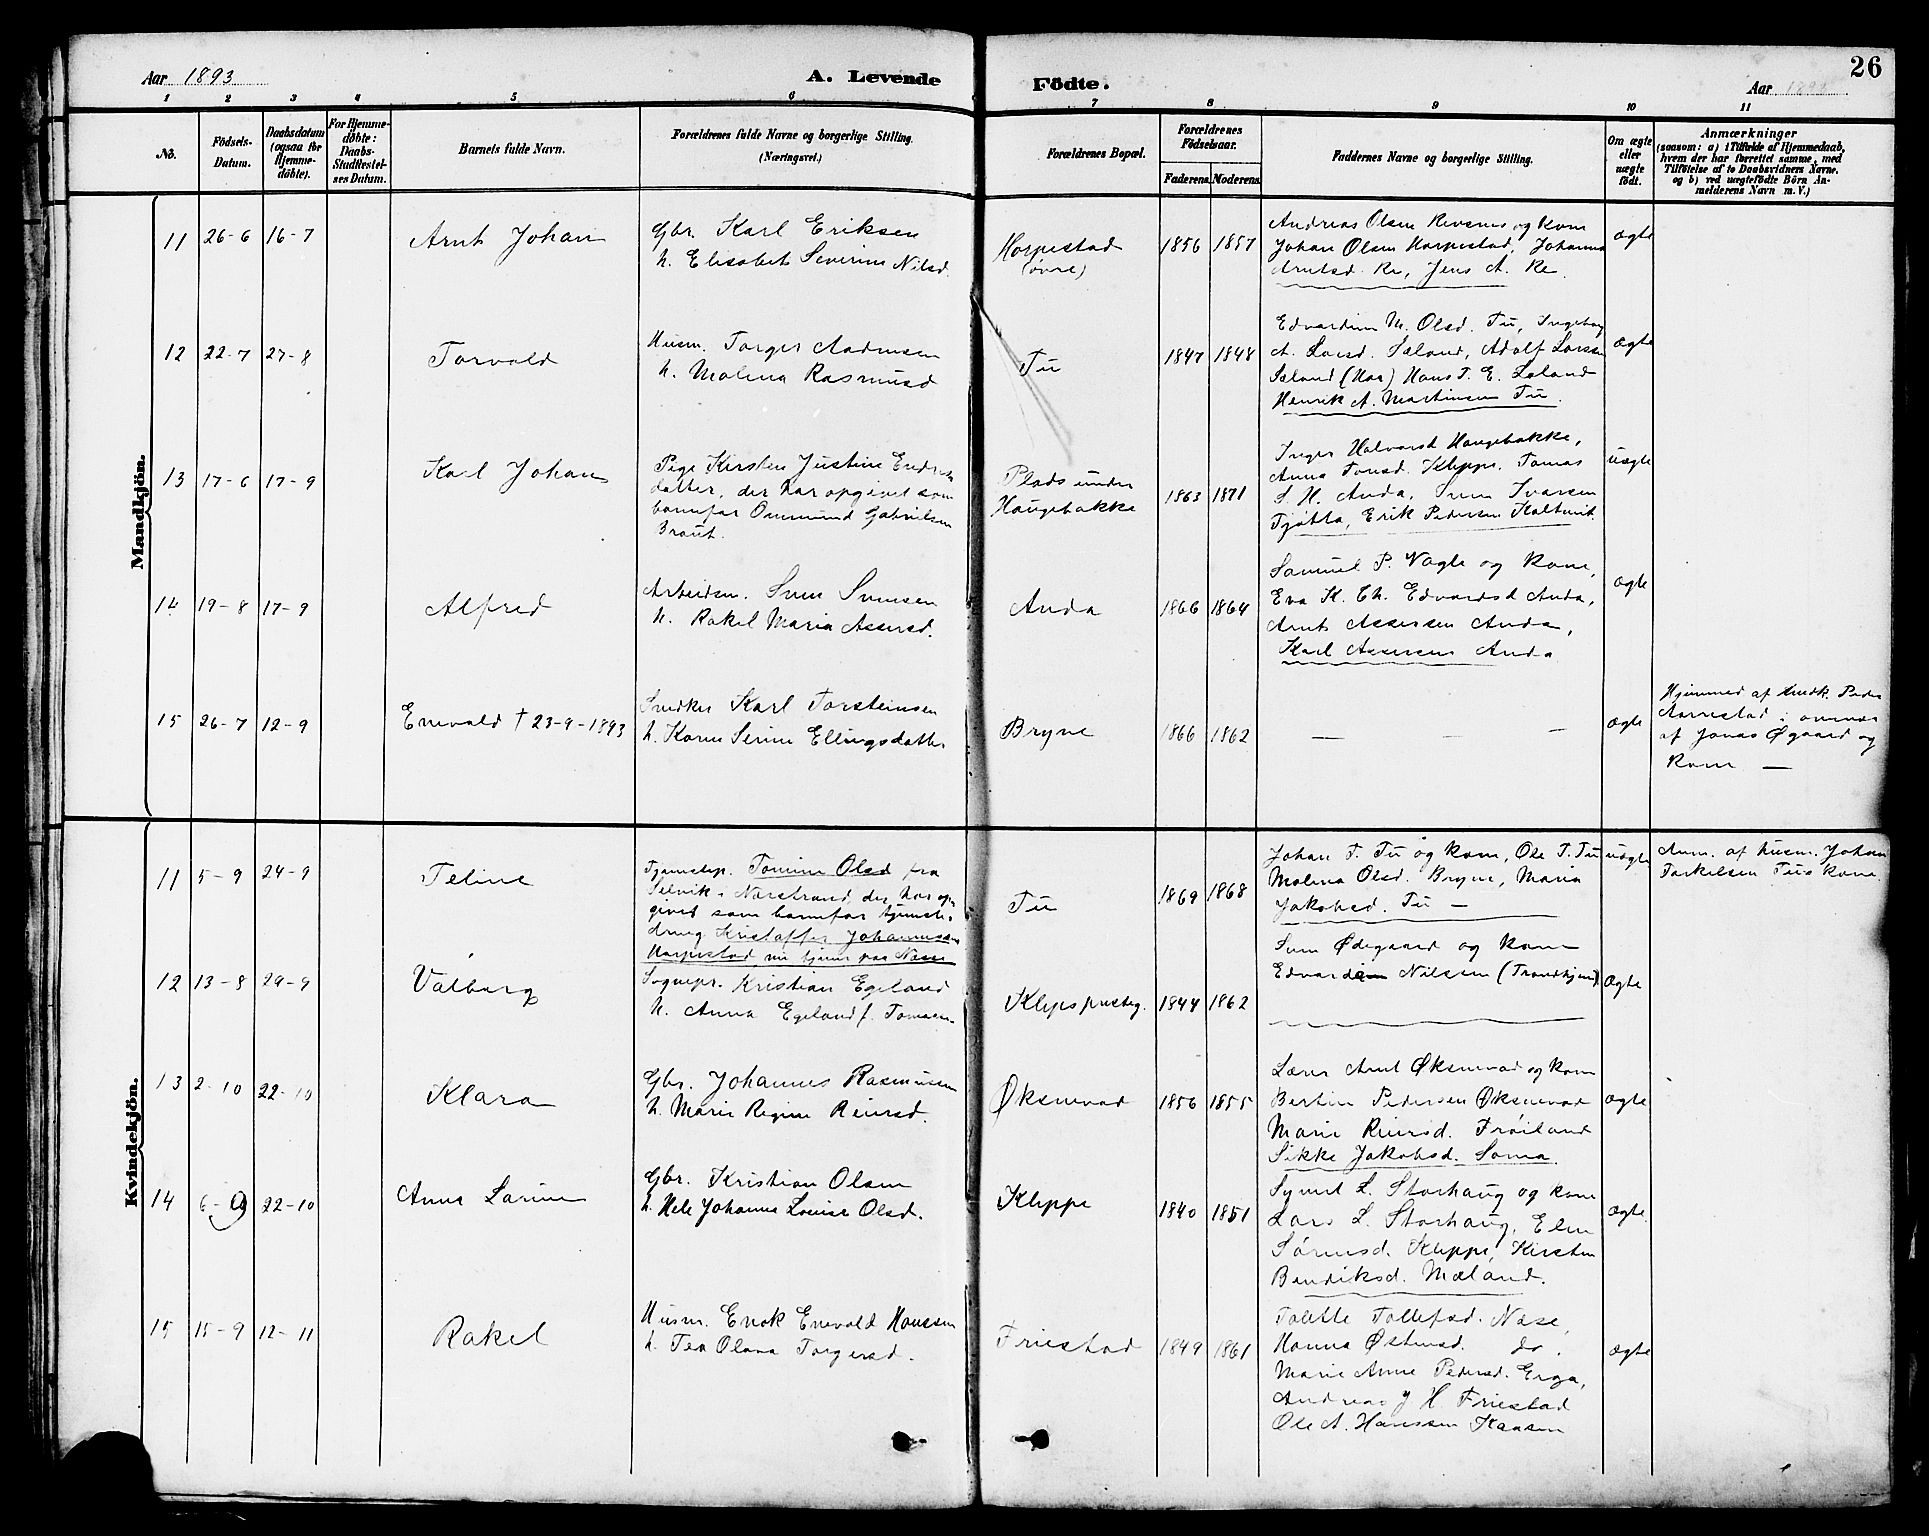 26
Aar 1893 A. Levende Födte. Aar
1 2 3 4 5 6 7 8 9 10 11
No.
Födsels-Datum.
Daabsdatum (ogsaa for Hjemme-döbte).
For Hjemme-döbte: Daabs-Stadfæstel-ses Datum.
Barnets fulde Navn.
Forældrenes fulde Navne og borgerlige Stilling. (Næringsvei.)
Forældrenes Bopæl.
Forældrenes Födselsaar.
Faderens. Moderens.
Faddernes Navne og borgerlige Stilling.
Om ægte eller uægte födt.
Anmærkninger
(saasom: a) i Tilfælde af Hjemmedaab,
hvem der har forrettet samme, med
Tilföielse af to Daabsvidners Navne.
og b) ved uægtefödte Börn An-
melderens Navn m. V.)
Mandkjön.
11 26-6 16-7 Arnt Johan
Gbr. Karl Eriksen
h. Elisabet Severine Nilsd.
Horpestad
(øvre)
1856 1857
Andreas Olsen Revsnes og kone
Johan Olsen Horpestad, Johanna
Arntsd. Re, Jens A. Re.
ægte
12 22-7 27-8 Torvald
Husm. Torger Andersen
h. Malena Rasmusd
Tu
1847 1848
M. Olsd. Tu, Ingeborg
A. Larsd. Sæland, Adolf Larsen
Sæland (Haa) Hans T. E. Laland
Henrik A. Martinsen Tu.
ægte
13 17-6 17-9 Karl Johan
Pige Kirsten Justine Endres
datter, der har opgivet som
barnfar Ommund Gabrielsen
Braut.
Plads under
Haugebakke
1863 1871
Inger Halvorsd Haugebakke,
Anna Tonsd. Kleppe. Tomas
S. H. Anda, Sven Ivarsen
Tjøtta, Erik Pedersen
uægte
14 19-8 17-9 Alfred
Arbeidsm. Sven Svensen
h. Rakel Maria Assersd.
Anda
1866 1864
Samuel P. Nagle og kone,
Eva K. Ch. Edvardsd Anda,
Arnt Assersen Anda,
Karl Assersen Anda
ægte
15 26-7 12-9 Enevald † 23-9-1893
Snedker Karl Torsteinsen
h. Karen Serine Ellingsdatter
Bryne
1866 1862
— — —
ægte
Hjemmed af Peder
Aarrestad i overvær
af Jonas Øgaard og
kone —
Kvindekjön.
11 5-9 24-9 Teline
Tjenestep. Tomine Olsd fra
Selvik i Narstrand, der har op
givet som barnfar tjeneste
dreng Kristoffer Johannessen
Horpestad, nu tjener paa Næse
Tu
1869 1868
Johan T. Tu og kone, Ole T. Tu
Malena Olsd. Bryne, Maria
Jakobsd. Tu —
uægte
Anm. af husm. Johan
Torkelsen Tus kone.
12 13-8 29-9 Valborg
Sognepr. Kristian Egeland
h. Anna Egeland f. Tomsen
Klepspresteg.
1844 1862
Sven Ødegaard og kone
Nilsen (Trondhjem)
ægte
13 2-10 22-10 Klara
Gbr. Johannes Rasmussen
h. Marie Regine Reiersd.
Øksnevad
1856 1855
Lærer Arnt Øksnevad og kone
Bertine Pedersen Øksnevad
Marie Reiersd. Frøiland
Sikke Jakobsd. Soma.
ægte
14 6-9 22-10 Anna Larine
Gbr. Kristian Olsen
h. Hele Johanne Louise Olsd.
Kleppe
1840 1851
L. Storhaug og kone
Lars L. Storhaug, Elen
Sørensd. Kleppe, Kirsten
Bendiksd. Mæland.
ægte
15 15-9 12-11 Rakel
Husm. Enok Enevald Hanssen
h. Tea Olava Torgersd.
Friestad
1849 1861
Tolette Tollefsd. Næse,
Hanna Østensd. do.
Marie Anne Pedersd. Erga,
Andreas J H. Friestad
Ole A. Hanssen
ægte